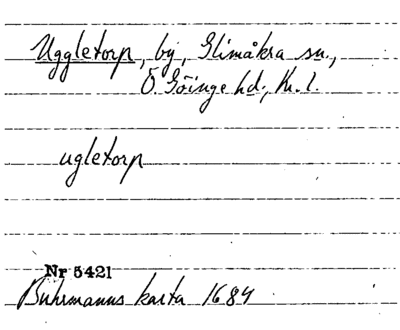 Uggletorp, by, Glimåkra sn.,
Ö. Göinge hd., Kr. l.
ugletorp
Nr 5421
Buhrmanns karta 1684